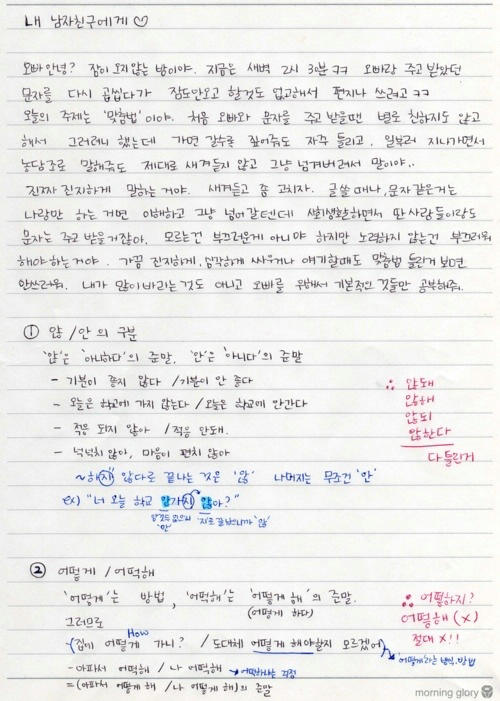 내 남자친구에게 ♡
오빠 안녕? 잠이 오지 않는 밤이야. 지금은 새벽 2시 30분 ㅋㅋ 오빠랑 주고 받았던
문자를 다시 곱씹다가 잠도 안오고 할것도 없고해서 편지나 쓰려고 ㅋㅋ
오늘의 주제는 '맞춤법'이야. 처음 오빠와 문자를 주고 받을땐 별로 친하지도 않고
해서 그러려니 했는데 가면 갈수록 짚어줘도 자주 틀리고, 일부러 지나가면서
농담조로 말해줘도 제대로 새겨듣지 않고 그냥 넘겨버려서 말이야..
진짜 진지하게 말하는 거야. 새겨듣고 좀 고치자. 글 쓸 때나, 문자 같은거는
나랑만 하는 거면 이해하고 그냥 넘어 갈텐데 사회생활하면서 딴 사람들이랑도
문자는 주고 받을거잖아. 모르는건 부끄러운게 아니야 하지만 노력하지 않는건 부끄러워
해야하는거야. 가끔 진지하게, 심각하게 싸우거나 얘기할때도 맞춤법 틀린거 보면
안쓰러워. 내가 많이 바라는것도 아니고 오빠를 위해서 기본적인 것들만 공부해줘.
① 않/안의 구분
'않'은 '아니하다'의 준말, '안'은 '아니다'의 준말
- 기분이 좋지 않다 / 기분이 안 좋다
- 오늘은 학교에 가지 않는다 / 오늘은 학교에 안간다
- 적응 되지 않아 / 적응 안돼.
- 넉넉치 않아, 마음이 편치 않아
∴ 않돼
않해
않되
않한다
다 틀린거
~하지 않다로 끝나는 것은 '않' 나머지는 무조건 '안'
ex) "너 오늘 학교 안가지 않아?"
'안'
'지'로 끝났으니까 '않'
② 어떻게 / 어떡해
'어떻게'는 방법, '어떡해'는 '어떻게 해'의 준말.
(어떻게 하다)
그러므로
How
(집에 어떻게 가니? / 도대체 어떻게 해야할지 모르겠어)
'어떻게'라는 방식, 방법
- 아파서 어떡해 / 나 어떡해
=(아파서 어떻게 해 / 나 어떻게 해)의 준말
∴ 어떻하지?
어떻해 (X)
절대 X!!
morning glory